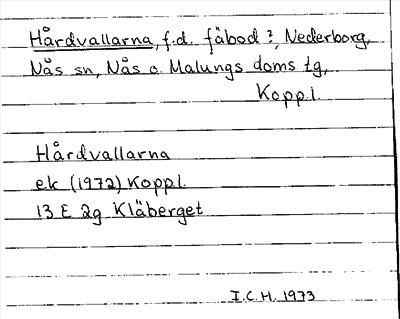 Hårdvallarna, f.d. fäbod?, Nederborg,
Nås sn, Nås o. Malungs doms tg,
Kopp.l.
Hårdvallarna
ek (1972) Koppl.
13 E 2g Kläberget
I.C.H. 1973